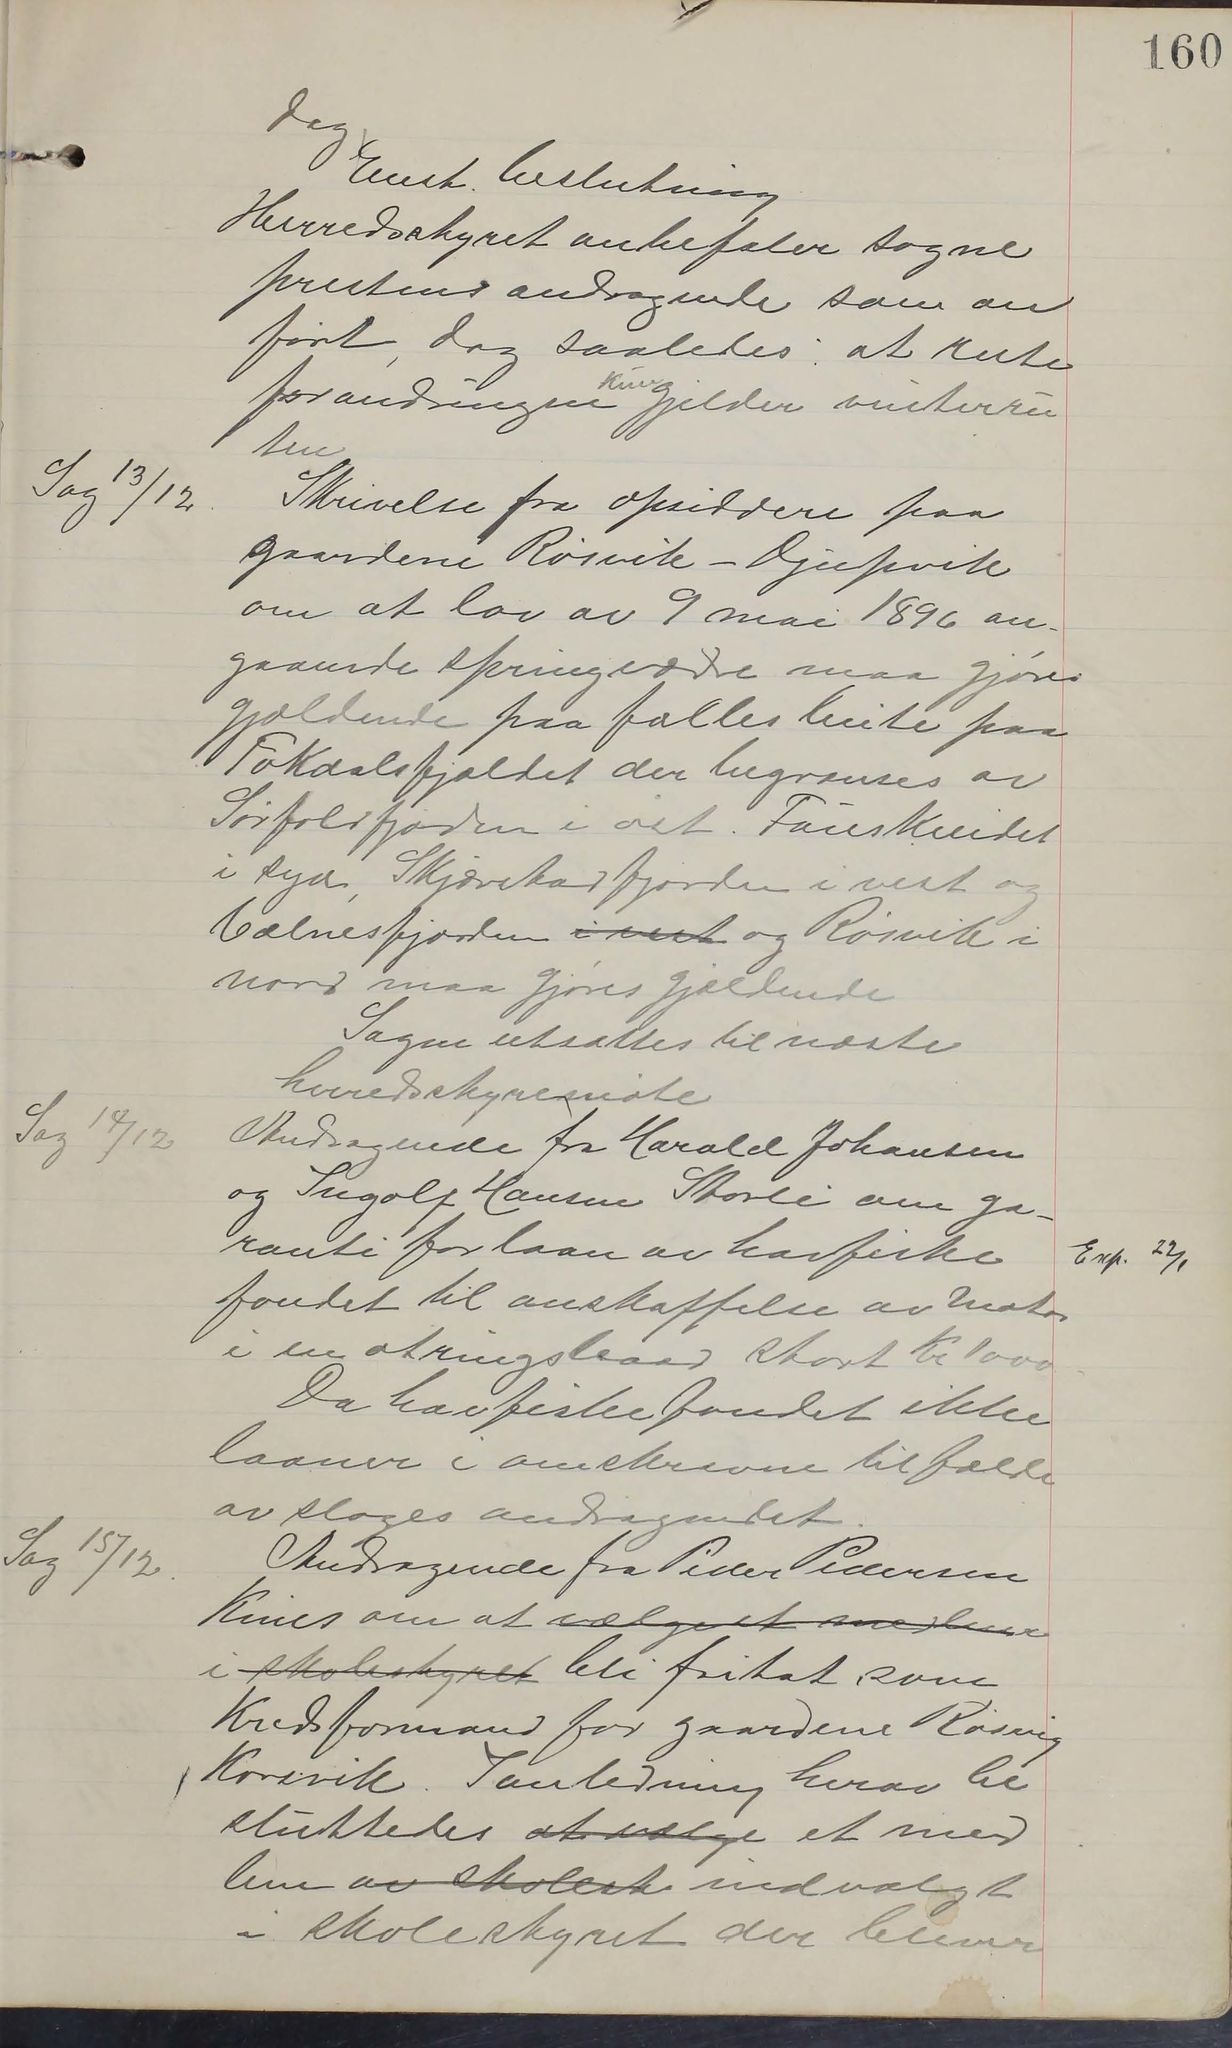 160
dog
Enst. beslutning
Herredsstyret anbefaler sogne
prestens andragende som an
ført, dog saaledes: at rute
forandringen kun gjelder vinterru
ten
Sag 13/12. Skrivelse fra opsiddere paa
gaardene Røsvik - Djupvik
om at lov av 9 mai 1896 an-
gaaende springvædre maa gjøres
gjældende paa fælles beite paa
Fokdalsfjældet der begrænses av
Sørfoldfjorden i øst. Fauskeeidet
i syd, Skjerstadfjorden i vest og
Valnesfjorden i vest og Røsvik i
nord maa gjøres gjældende
Sagen utsattes til næste
herredsstyremøte
Sag 14/12 Andragende fra Harald Johansen
og Ingolf Hansen Storli om ga-
ranti for laan av havfiske
fondet til anskaffelse av motor
i en otringsbaad stort kr 1000-
Exp. 22/1
Da havfiskefondet ikke
laaner i omskrevne tilfælde
av sloges andragendet.
Sag 15/12. Andragende fra Peder Pedersen
Kines om at vælge et medlem
i skolestyret bli fritat som
Kredsformand for gaardene Røsvig
Korsvik. I anledning herav be
sluttedes at vælge et med
lem av skolest indvalgt
i skolestyret der bliver